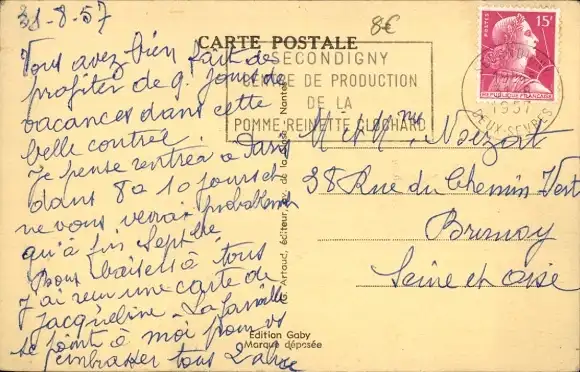 31-8-57
8€
CARTE POSTALE
Vous avez bien fait de
profiter de q. jours de
vacances dans cette
belle contrée.
Je pense rentrer à Paris
dans 8 à 10 jours et
ne vous verrai probablement
qu'à fin Septbre
Bons baisers à tous
J'ai reçu une carte de
Jacqueline - La famille
se joint à moi pour vs
embrasser tous
SECONDIGNY
CENTRE DE PRODUCTION
DE LA
POMME REINETTE CLOCHARD
POSTES
15F
RÉPUBLIQUE FRANÇAISE
1957
DEUX-SEVRES
M et Mme Noizat
38 Rue du Chemin Vert
Brunoy
Seine et Oise
G. Artaud, éditeur, Nantes
Edition Gaby
Marque déposée